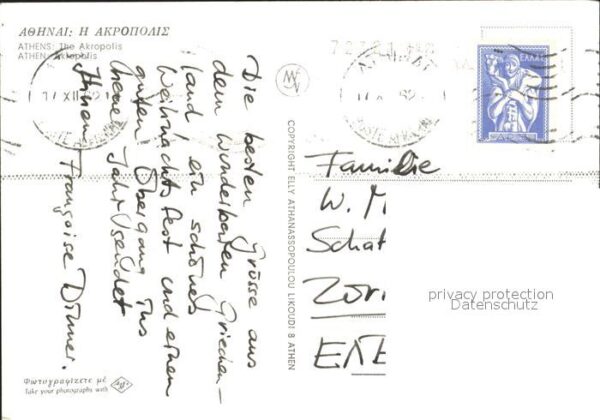 ΑΘΗΝΑΙ: Η ΑΚΡΟΠΟΛΙΣ
ATHENS: The Akropolis
ATHEN: Akropolis
Die besten Grüsse aus
dem wunderbaren Griechen-
land, ein schönes
Weihnachtsfest und einen
guten Übergang ins
neue Jahr sendet
Ihnen Françoise
Φωτογραφίζετε μέ
Take your photographs with
COPYRIGHT ELLY ATHANASSOPOULOU LIKOUDI 8 ATHEN
17 XII 62
ΕΛΛΑΣ
Familie
W. M
Schat
Züri
ΕΛΒ
privacy protection
Datenschutz